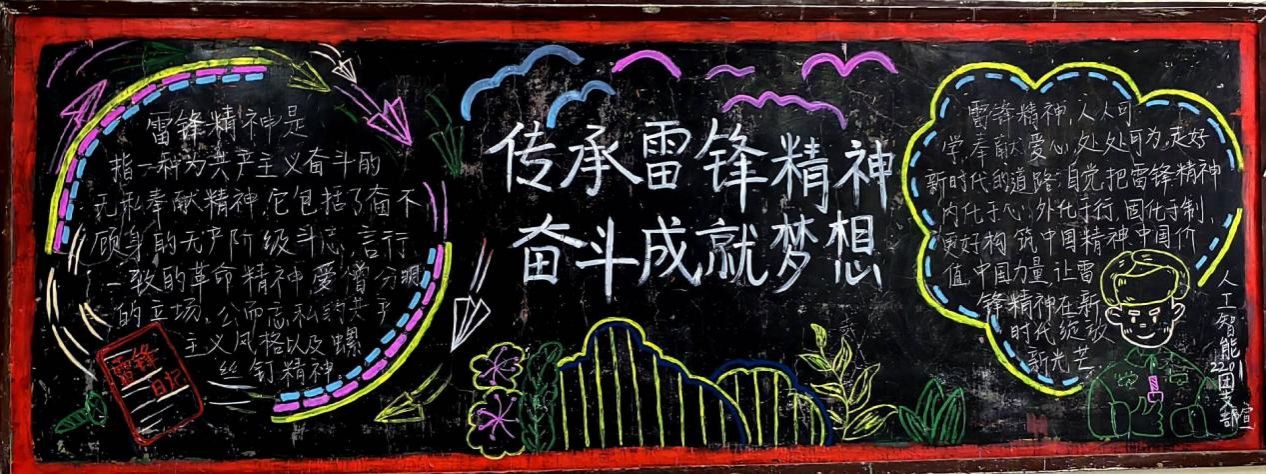 雷锋精神是
指一种为共产主义奋斗的
无私奉献精神,它包括了奋不
顾身的无产阶级斗志,言行
一致的革命精神,爱憎分明
的立场,公而忘私的共产
主义风格以及螺
丝钉精神
雷锋
日记
传承雷锋精神
奋斗成就梦想
雷锋精神,人人可
学,奉献爱心,处处可为,走好
新时代的道路,自觉把雷锋精神
内化于心,外化于行,固化于制,
更好构筑中国精神,中国价
值,中国力量,让雷
锋精神在新
时代绽放
新光芒
人工智能2201团支部宣